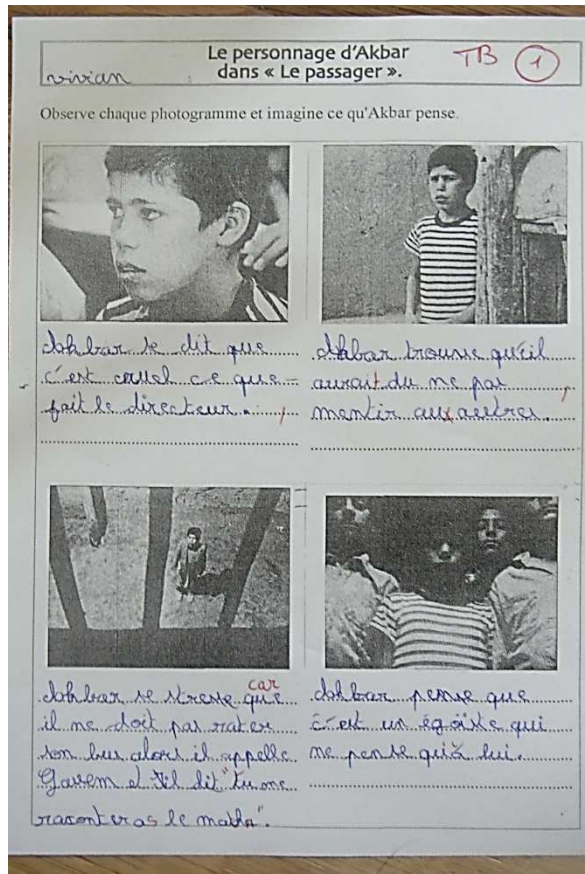 Le personnage d'Akbar
dans « Le passager ».
TB 1
vivian
Observe chaque photogramme et imagine ce qu'Akbar pense.
Akbar se dit que
c'est cruel ce que
fait le directeur.
Akbar trouve qu'il
aurait du ne pas
mentir aux autres.
Akbar se stresse que car
il ne doit pas rater
son bus alors il appelle
Gasem et il dit "tu me
raconteras le match".
Akbar pense que
c'est un égoïste qui
ne pense qu'à lui.